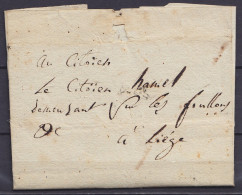 au Citoien
Le Citoien hamel
demeurant sur les foullons
à Liége